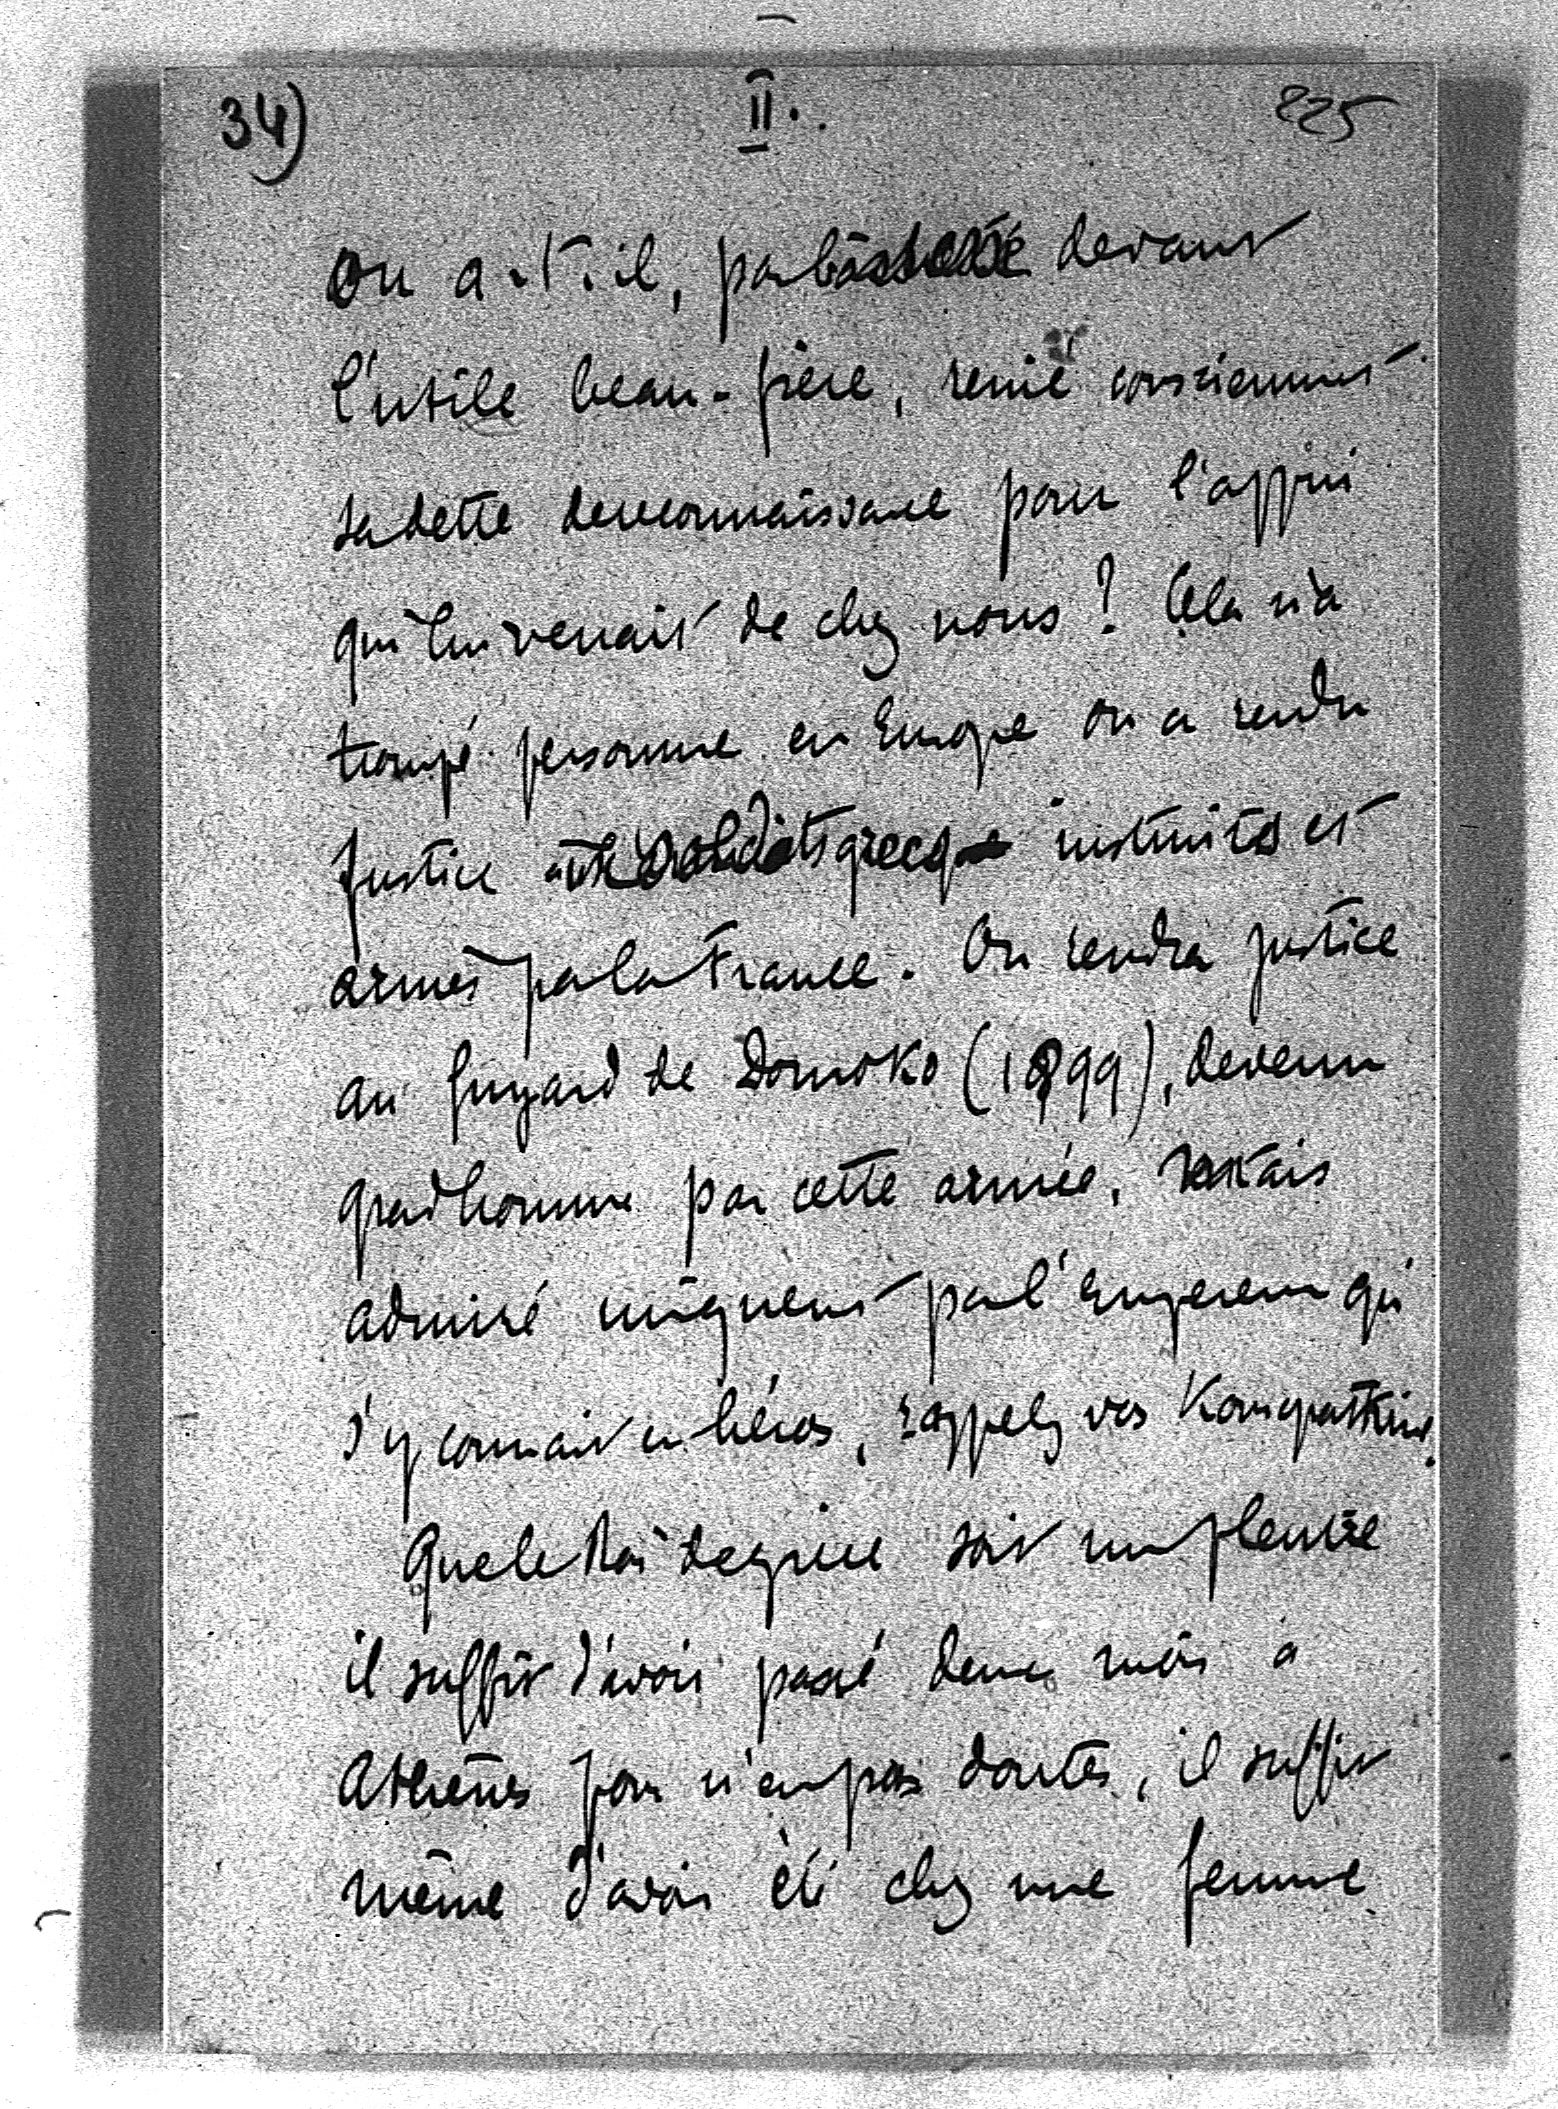 34) II. 225
Ou a-t-il, par bassesse devant
l'utile beau-frère, renié consciemment
sa dette de reconnaissance pour l'appui
qui lui venait de chez nous? Cela n'a
trompé personne en Europe on a rendu
justice aux soldats grecs instruits et
armés par la France. On rendra justice
au fuyard de Domoko (1899), devenu
grand homme par cette armée,
admiré uniquement par l'Empereur qui
s'y connait en héros, rappelez vos Kouropatkine.
Que le Roi de grèce soit un pleutre
il suffit d'avoir passé deux mois à
Athènes pour n'en pas douter, il suffit
même d'avoir été chez une femme